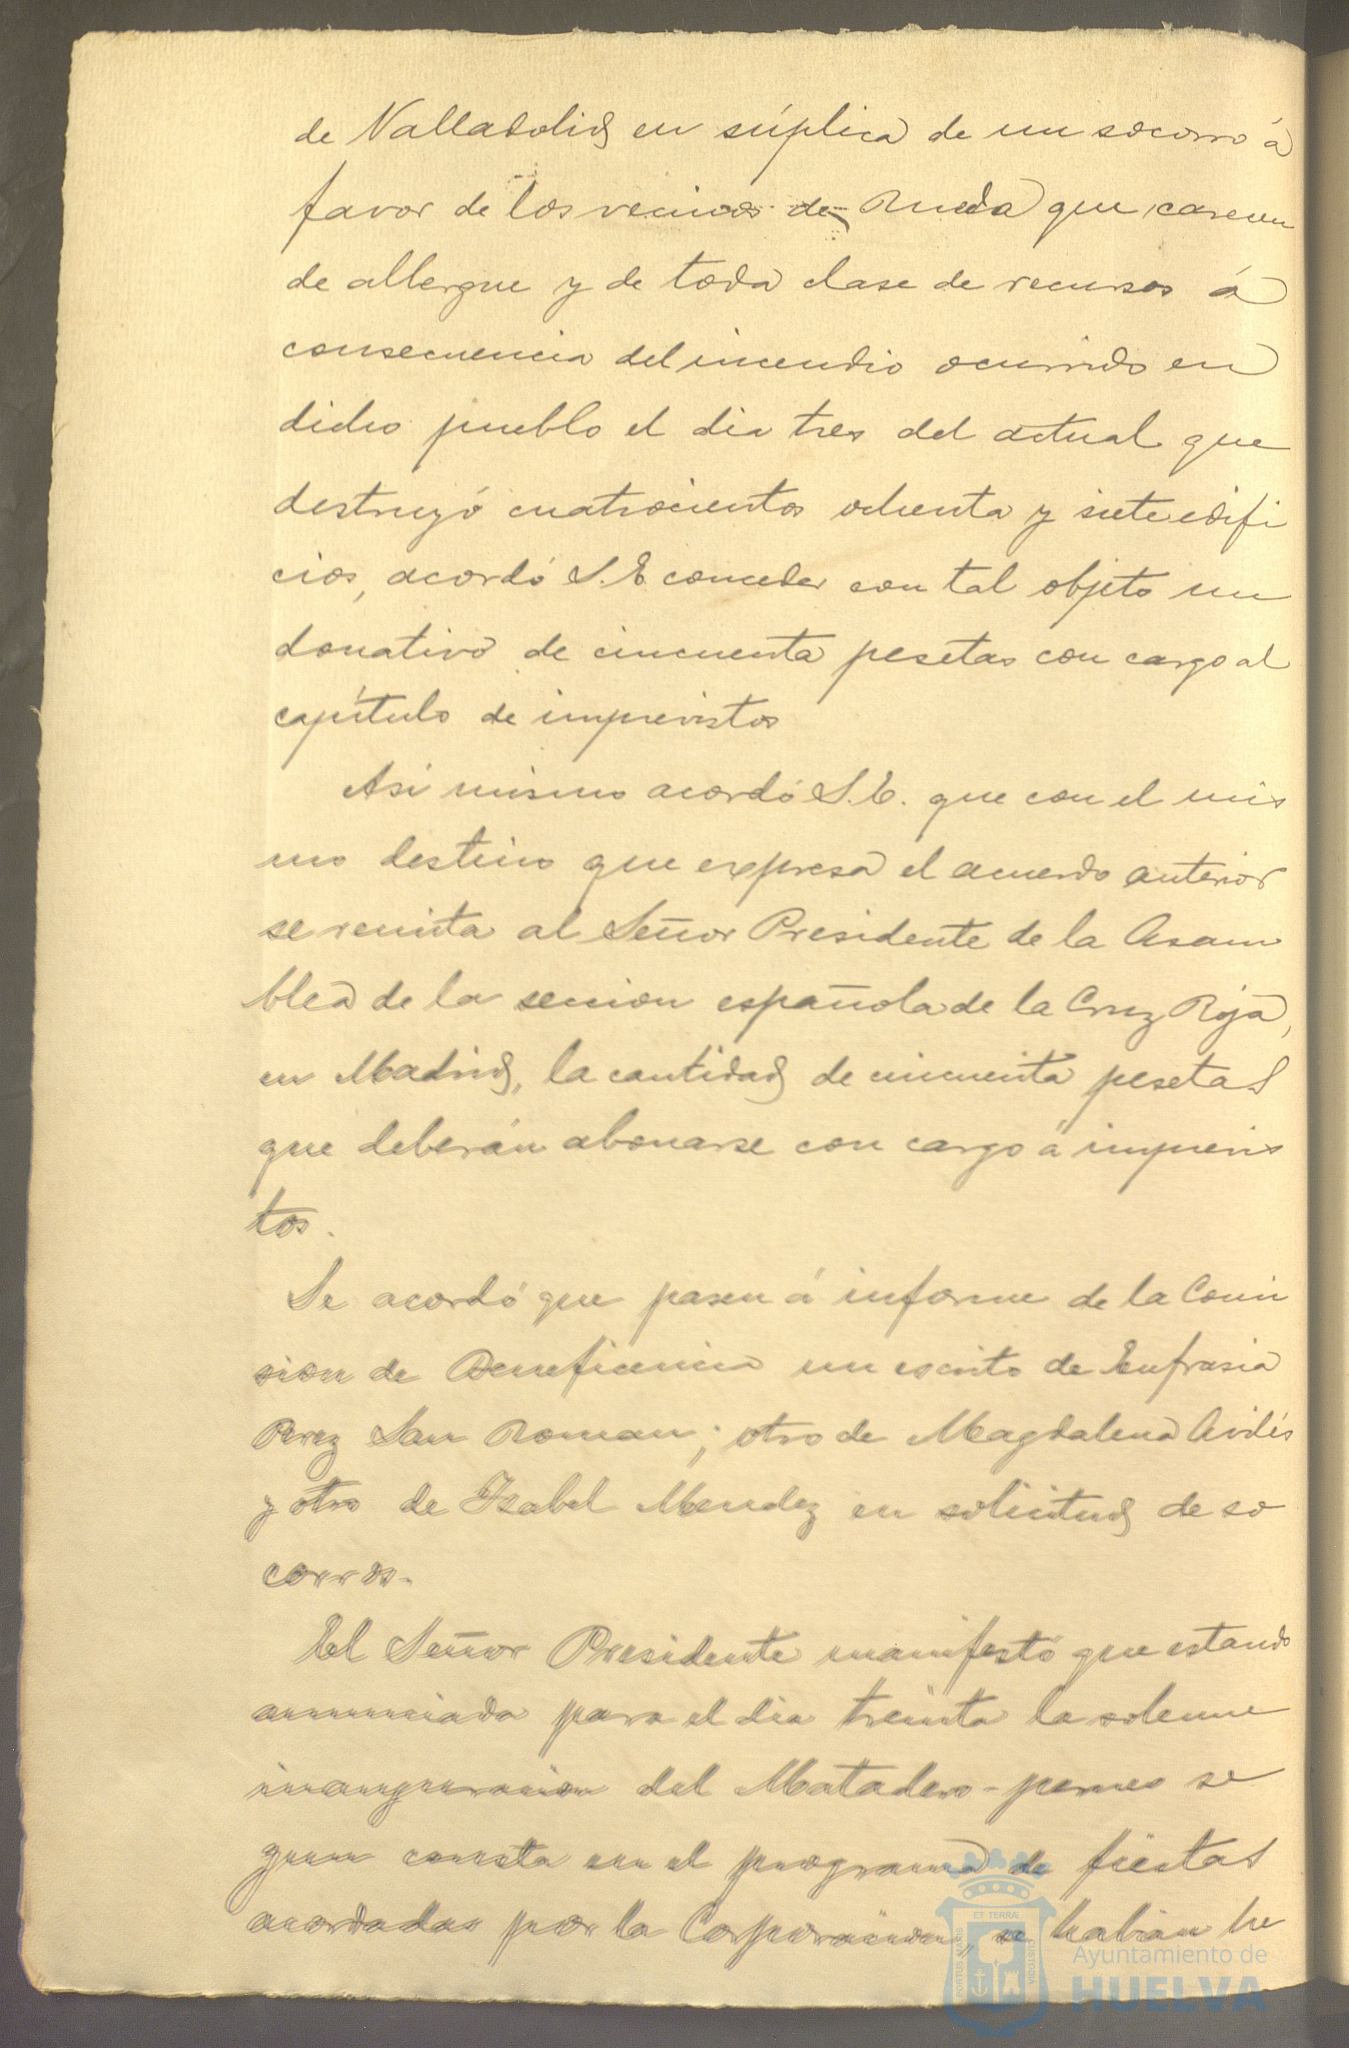 de Valladolid en súplica de un socorro á
favor de los vecinos de Rueda que carecen
de albergue y de toda clase de recursos á
consecuencia del incendio ocurrido en
dicho pueblo el dia tres del actual que
destruyó cuatrocientos ochenta y siete edifi
cios, acordó S. E conceder con tal objeto un
donativo de cincuenta pesetas con cargo al
capítulo de imprevistos
Asi mismo acordó S. E. que con el mis
mo destino que expresa el acuerdo anterior
se remita al Señor Presidente de la Asam
blea de la seccion española de la Cruz Roja,
en Madrid, la cantidad de cincuenta pesetas
que deberán abonarse con cargo á imprevis
tos.
Se acordó que pasen á informe de la Comi
sion de Beneficencia un escrito de Eufrasia
Perez San Roman; otro de Magdalena Avilés
y otro de Isabel Mendez en solicitud de so
corros.
El Señor Presidente manifestó que estando
anunciada para el dia treinta la solemne
inauguracion del Matadero- se
gun consta en el programa de fiestas
acordadas por la Corporacion, se habian he
ET TERRÆ
PORTUS MARIS
CUSTODIA
Ayuntamiento de
HUELVA